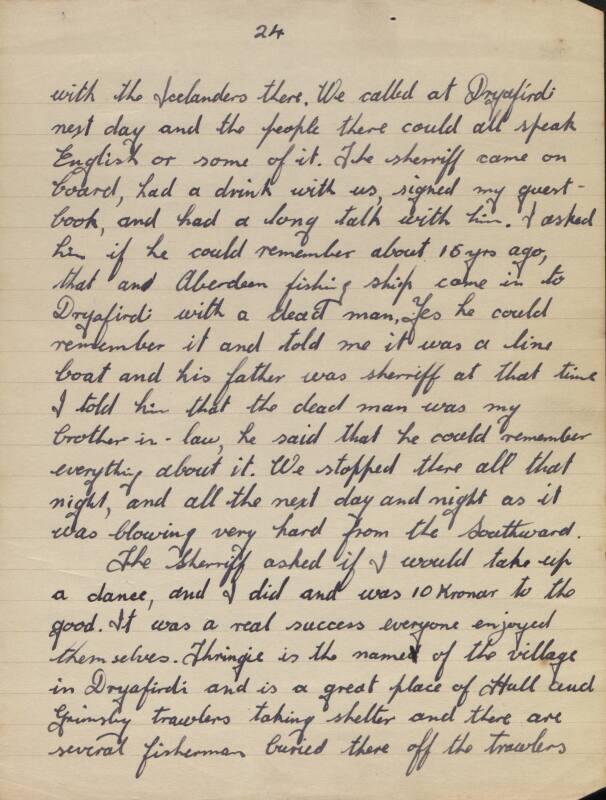 24
with the Icelanders there. We called at Dryafirdi
next day and the people there could all speak
English or some of it. The sherriff came on
board, had a drink with us, signed my guest-
book, and had a long talk with him. I asked
him if he could remember about 15 yrs ago,
that and Aberdeen fishing ship came in to
Dryafirdi with a dead man, Yes he could
remember it and told me it was a line
boat and his father was sherriff at that time
I told him that the dead man was my
brother-in-law, he said that he could remember
everything about it. We stopped there all that
night, and all the next day and night as it
was blowing very hard from the Southward.
The Sherriff asked if I would take up
a dance, and I did and was 10 Kronar to the
good. It was a real success everyone enjoyed
themselves. Thringie is the name of the village
in Dryafirdi and is a great place of Hull and
Grimsby trawlers taking shelter and there are
several fisherman buried there off the trawlers